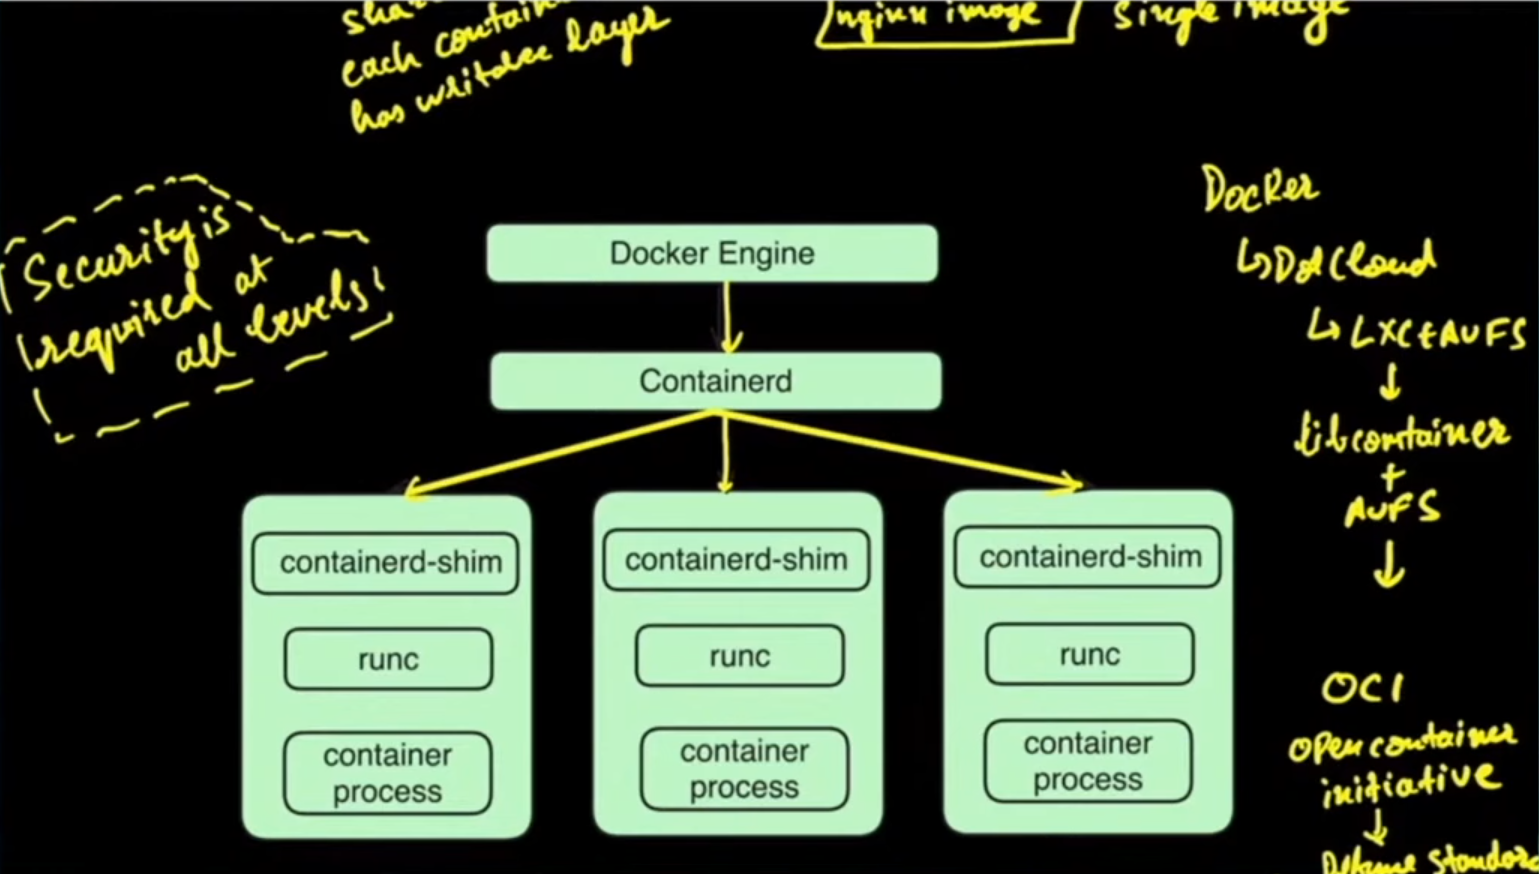 each
has writable layer
nginx image
single image
Security is
required at
all levels
Docker Engine
Containerd
containerd-shim
runc
container
process
containerd-shim
runc
container
process
containerd-shim
runc
container
process
Docker
↳ DotCloud
↳ LXC + AUFS
↓
libcontainer
+
AUFS
↓
OCI
open container
initiative
↓